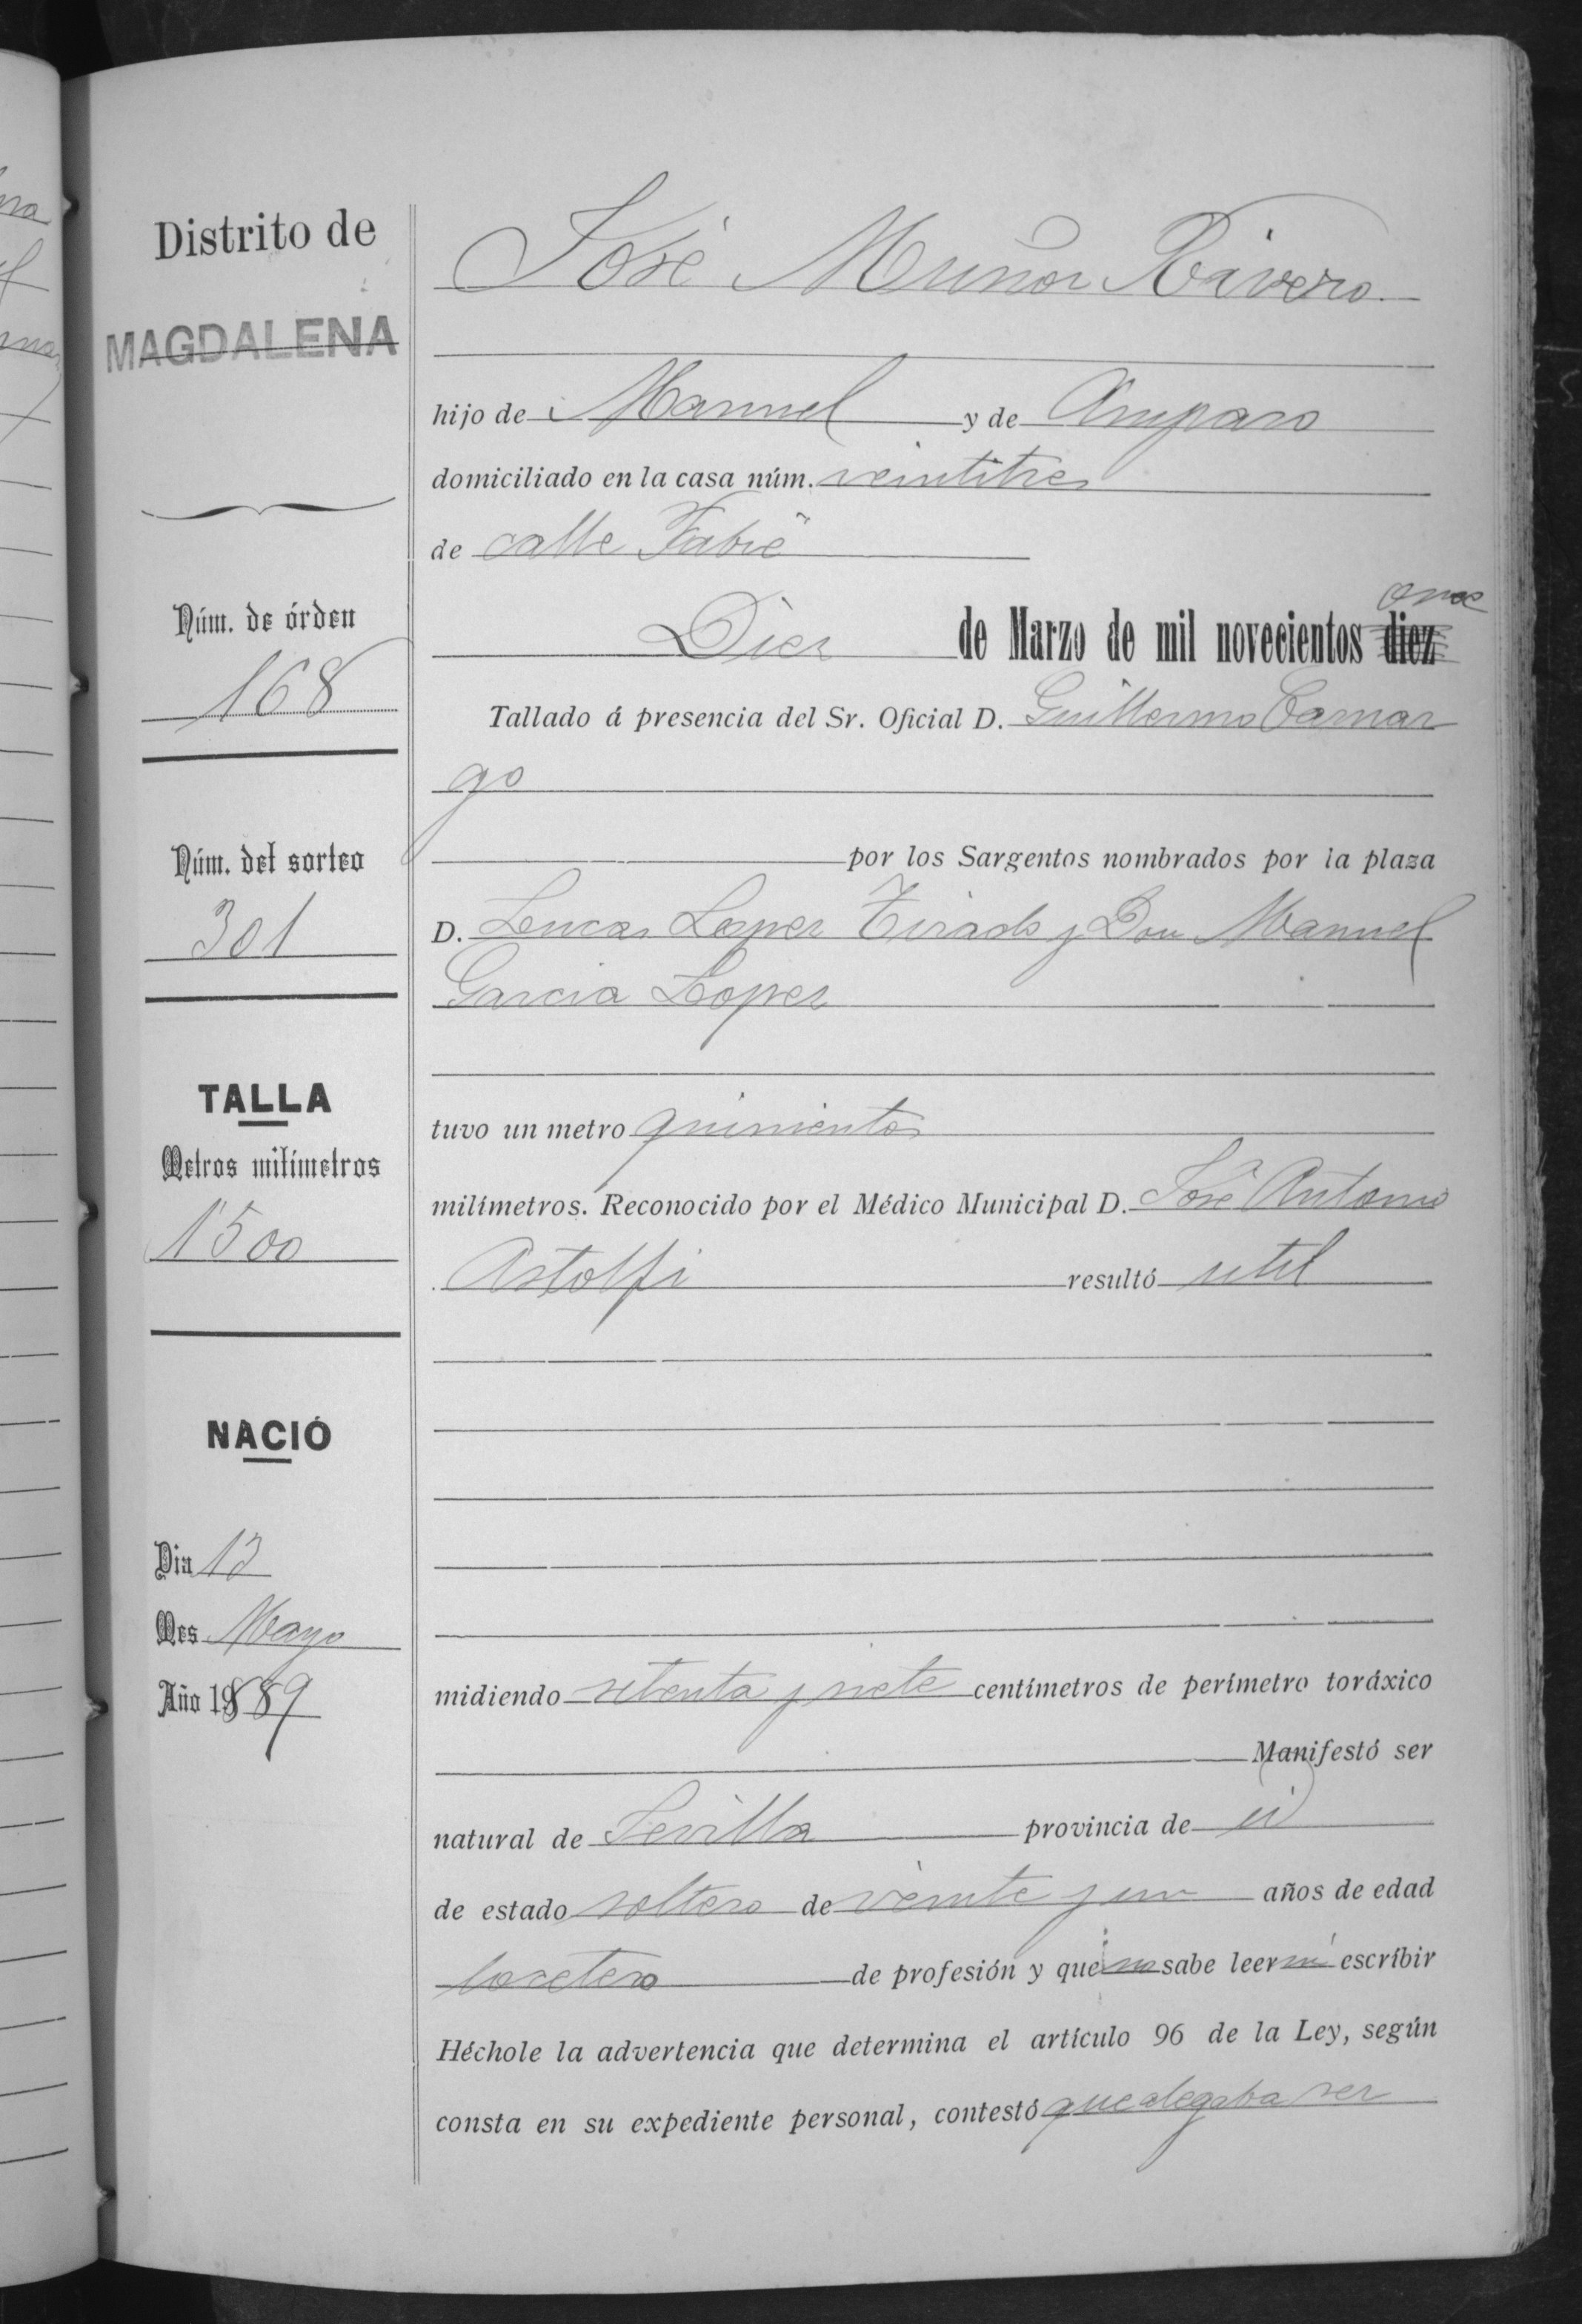 Distrito de
MAGDALENA
Núm. de órden
168
Núm. del sorteo
301
TALLA
Metros milímetros
1'500
NACIÓ
Dia 13
Mes Mayo
Año 1889
José Muñoz Rivero
hijo de Manuel y de Amparo
domiciliado en la casa núm. veintitres
de calle Fabié
once
Diez de Marzo de mil novecientos diez
Tallado á presencia del Sr. Oficial D. Guillermo Camar
go
por los Sargentos nombrados por la plaza
D. Lucas Lopez Tirado y Don Manuel
Garcia Lopez
tuvo un metro quinientos
milímetros. Reconocido por el Médico Municipal D. José Antonio
Astolfi resultó util
midiendo setenta y siete centímetros de perímetro toráxico
Manifestó ser
natural de Sevilla provincia de id
de estado soltero de veinte y un años de edad
de profesión y que no sabe leer ni escribir
Héchole la advertencia que determina el artículo 96 de la Ley, según
consta en su expediente personal, contestó que alegaba ser